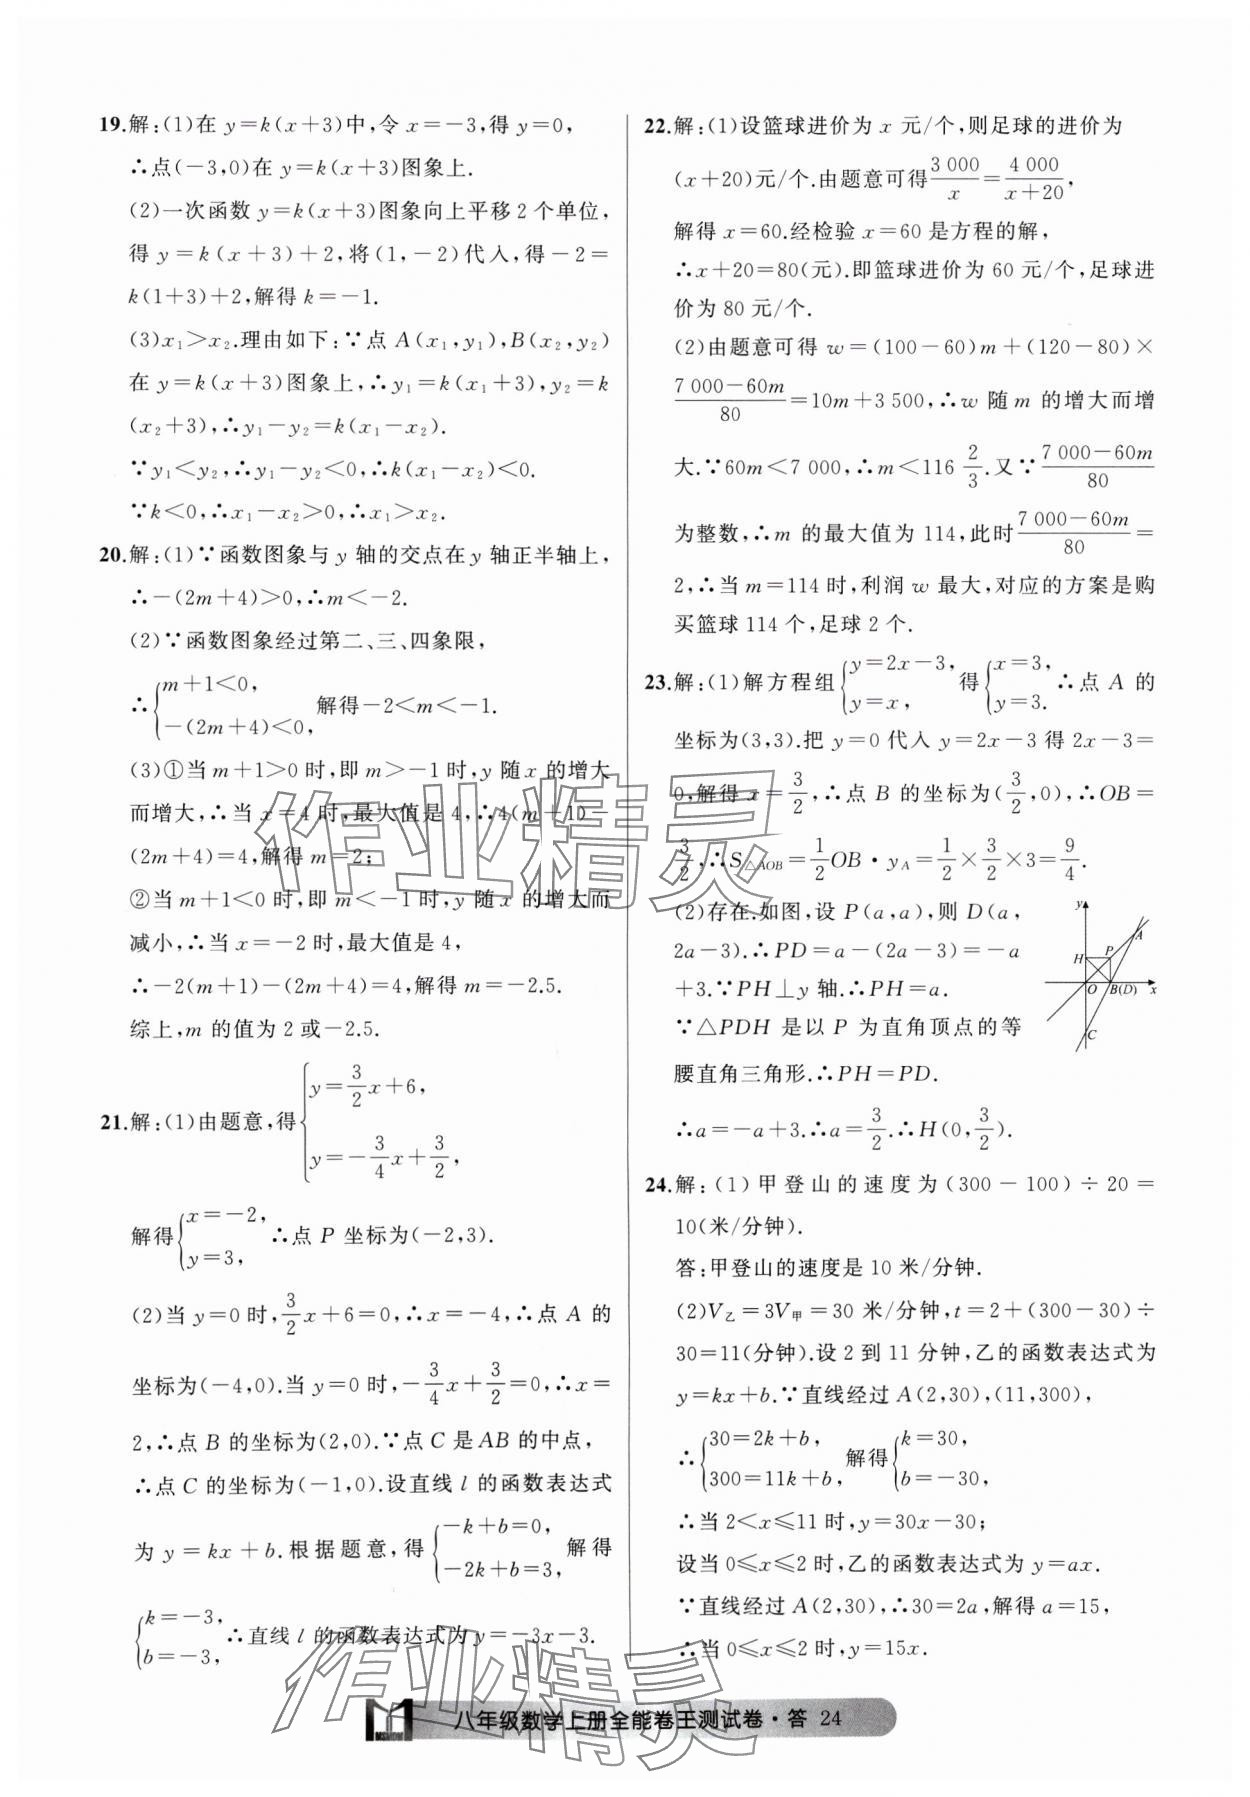 19.解:(1)在 y=k(x+3)中,令 x=-3,得 y=0,
∴点(-3,0)在 y=k(x+3)图象上.
(2)一次函数 y=k(x+3)图象向上平移 2 个单位,
得 y=k(x+3)+2,将(1,-2)代入,得-2=
k(1+3)+2,解得 k=-1.
(3)x₁>x₂.理由如下:∵点 A(x₁,y₁),B(x₂,y₂)
在 y=k(x+3)图象上,∴y₁=k(x₁+3),y₂=k
(x₂+3),∴y₁-y₂=k(x₁-x₂).
∵y₁<y₂,∴y₁-y₂<0,∴k(x₁-x₂)<0.
∵k<0,∴x₁-x₂>0,∴x₁>x₂.
20.解:(1)∵函数图象与 y 轴的交点在 y 轴正半轴上,
∴-(2m+4)>0,∴m<-2.
(2)∵函数图象经过第二、三、四象限,
∴{m+1<0, -(2m+4)<0, 解得-2<m<-1.
(3)①当 m+1>0 时,即 m>-1 时,y 随 x 的增大
而增大,∴当 x=4 时,最大值是 4,∴4(m+1)-
(2m+4)=4,解得 m=2;
②当 m+1<0 时,即 m<-1 时,y 随 x 的增大而
减小,∴当 x=-2 时,最大值是 4,
∴-2(m+1)-(2m+4)=4,解得 m=-2.5.
综上,m 的值为 2 或-2.5.
21.解:(1)由题意,得{y=3/2x+6, y=-3/4x+3/2,
解得{x=-2, y=3, ∴点 P 坐标为(-2,3).
(2)当 y=0 时,3/2x+6=0,∴x=-4,∴点 A 的
坐标为(-4,0).当 y=0 时,-3/4x+3/2=0,∴x=
2,∴点 B 的坐标为(2,0).∵点 C 是 AB 的中点,
∴点 C 的坐标为(-1,0).设直线 l 的函数表达式
为 y=kx+b.根据题意,得{-k+b=0, -2k+b=3, 解得
{k=-3, b=-3, ∴直线 l 的函数表达式为 y=-3x-3.
22.解:(1)设篮球进价为 x 元/个,则足球的进价为
(x+20)元/个.由题意可得3 000/x=4 000/(x+20),
解得 x=60.经检验 x=60 是方程的解,
∴x+20=80(元).即篮球进价为 60 元/个,足球进
价为 80 元/个.
(2)由题意可得 w=(100-60)m+(120-80)×
(7 000-60m)/80=10m+3 500,∴w 随 m 的增大而增
大.∵60m<7 000,∴m<116 2/3.又∵(7 000-60m)/80
为整数,∴m 的最大值为 114,此时(7 000-60m)/80=
2,∴当 m=114 时,利润 w 最大,对应的方案是购
买篮球 114 个,足球 2 个.
23.解:(1)解方程组{y=2x-3, y=x, 得{x=3, y=3. ∴点 A 的
坐标为(3,3).把 y=0 代入 y=2x-3 得 2x-3=
0,解得 x=3/2,∴点 B 的坐标为(3/2,0),∴OB=
3/2,∴S△AOB=1/2OB·yA=1/2×3/2×3=9/4.
(2)存在.如图,设 P(a,a),则 D(a,
2a-3).∴PD=a-(2a-3)=-a
+3.∵PH⊥y 轴.∴PH=a.
∵△PDH 是以 P 为直角顶点的等
腰直角三角形.∴PH=PD.
∴a=-a+3.∴a=3/2.∴H(0,3/2).
y
A
H P
O B(D) x
C
24.解:(1)甲登山的速度为(300-100)÷20=
10(米/分钟).
答:甲登山的速度是 10 米/分钟.
(2)V乙=3V甲=30 米/分钟,t=2+(300-30)÷
30=11(分钟).设 2 到 11 分钟,乙的函数表达式为
y=kx+b.∵直线经过 A(2,30),(11,300),
∴{30=2k+b, 300=11k+b, 解得{k=30, b=-30,
∴当 2<x≤11 时,y=30x-30;
设当 0≤x≤2 时,乙的函数表达式为 y=ax.
∵直线经过 A(2,30),∴30=2a,解得 a=15,
∴当 0≤x≤2 时,y=15x.
作业精灵
作业精灵
八年级数学上册全能卷王测试卷·答 24